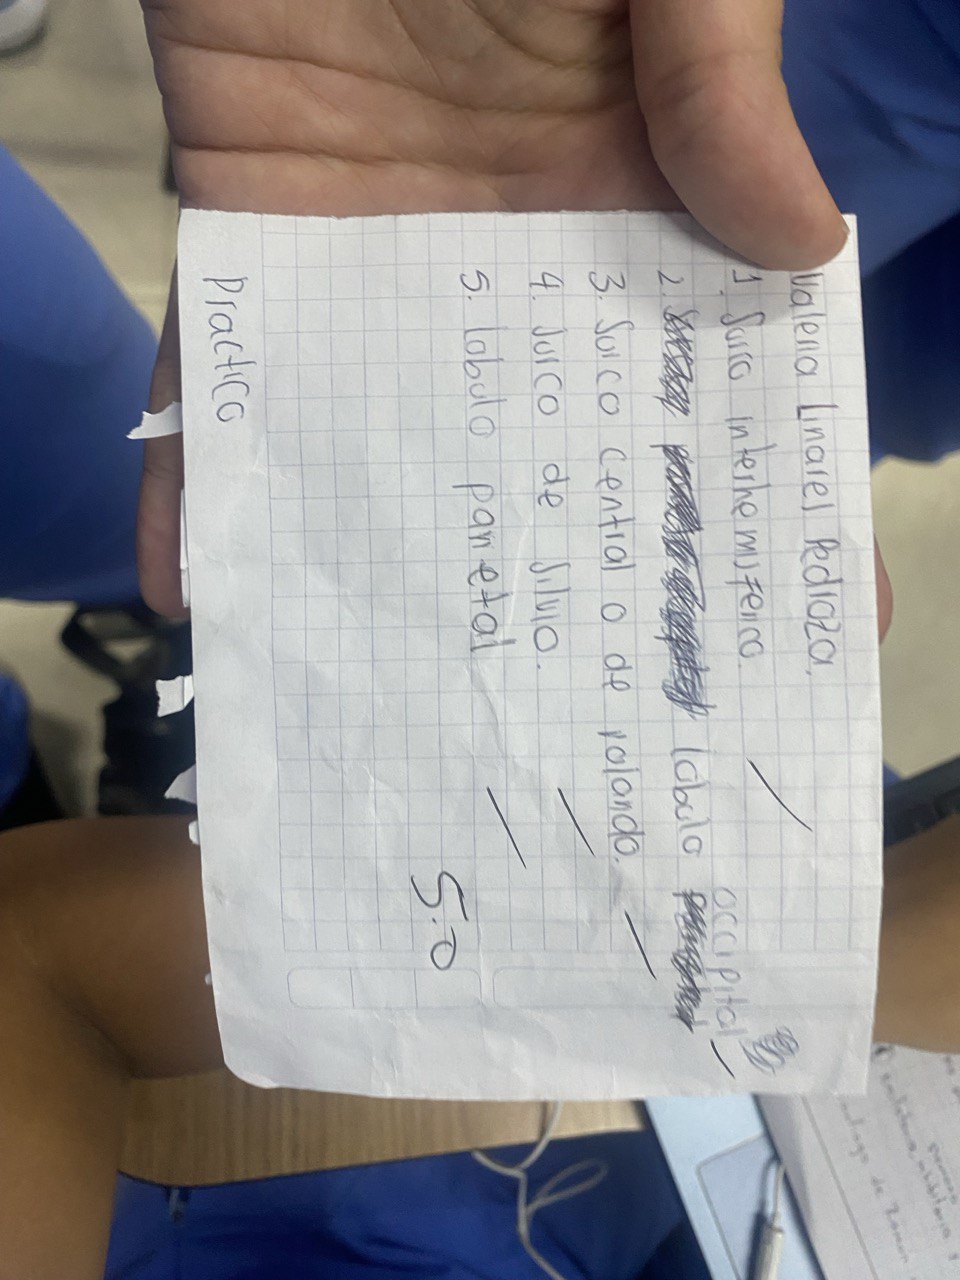 Valeria Linares Pedroza.
1. Surco interhemisferico.
2. lóbulo occipital
3. Surco central o de rolando.
4. Surco de silvio.
5. lobulo parietal
5.0
Practico